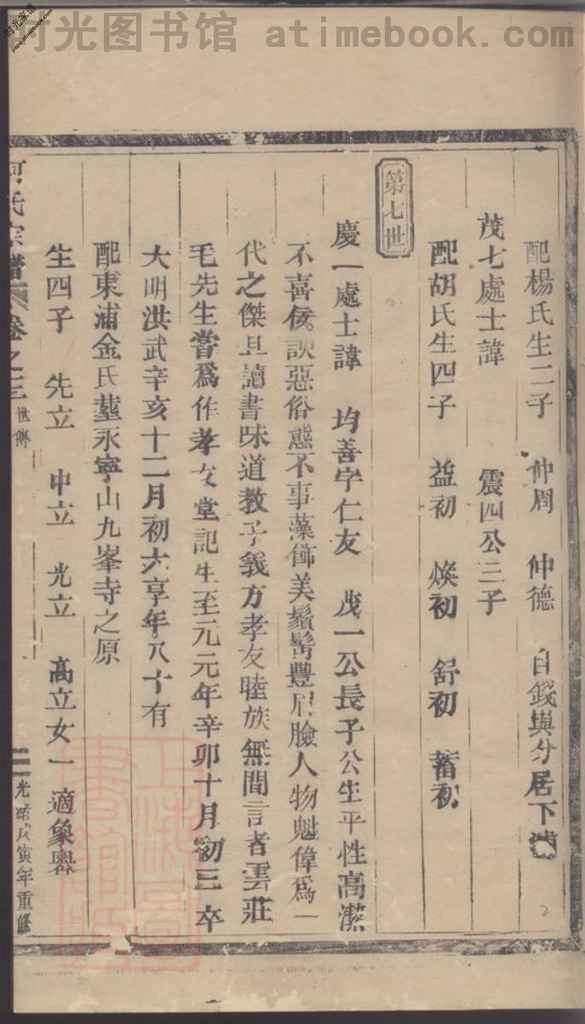 时光图书馆 atimebook.com
配楊氏生二子 仲周 仲德 自錢與分居下
茂七處士諱 震四公三子
配胡氏生四子 益初 煥初 舒初 蓄初
第七世
慶一處士諱 均善字仁友 茂一公長子公生平性高潔
不喜侫諛惡俗態不事藻飾美鬚髯豐眉臉人物魁偉爲一
代之傑且讀書味道教子義方孝友睦族無間言者雲莊
毛先生嘗爲作孝友堂記生至元元年辛卯十月初三卒
大明洪武辛亥十二月初六享年八十有
配東浦金氏塟永寧山九峯寺之原
生四子 先立 中立 光立 高立女一 適象輿
氏宗譜 卷之三 世傳 二 光緒戊寅年重修